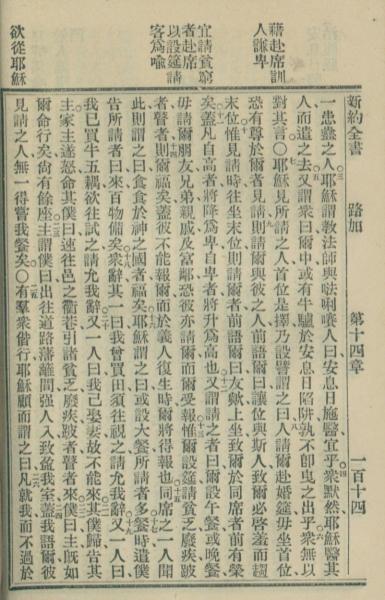 新約全書　路加　第十四章　一百十四
一患蠱之人耶穌謂教法師與𠵽唎㘔人曰安息日施醫宜乎衆默然耶穌醫其
人而遣之去又謂衆曰爾中或有牛驢於安息日陷阱孰不卽曳之出乎衆無以
藉赴席訓
人謙卑
對其言〇耶穌見所請之人首位是擇乃設譬謂之曰人請爾赴婚筵毋坐首位
恐有尊於爾者見請則請爾與彼之人前語爾曰讓位與斯人致爾必啓羞而趨
末位惟見請時往坐末位則請爾者前語爾曰友歟上坐致爾於同席者前有榮
矣蓋凡自高者將降爲卑自卑者將升爲高也又謂請之者曰爾設午餐或晚餐
宜請貧窮
者赴席
以設筵請
客爲喩
毋請爾朋友兄弟親戚及富鄰恐彼亦請爾而爾受報惟爾設筵請貧乏廢疾跛
者瞽者則爾福矣蓋彼不能報爾而於義人復生時爾將得報也同席之一人聞
此則謂之曰食食於神之國者福矣耶穌謂之曰或設大餐所請者多餐時遣僕
告所請者曰來百物備矣衆辭其一曰我曾買田須往視之請允我辭又一人曰
我已買牛五耦欲往試之請允我辭又一人曰我已娶妻故不能來其僕歸告其
主家主遂怒命其僕曰速往邑之衢巷引諸貧乏廢疾跛者瞽者來僕曰主旣如
爾命行矣尙有餘座主謂僕曰出往道路藩籬間强人入致盈我室蓋我語爾彼
欲從耶穌
見請之人無一得嘗我餐矣〇有羣衆偕行耶穌顧而謂之曰凡就我而不過於